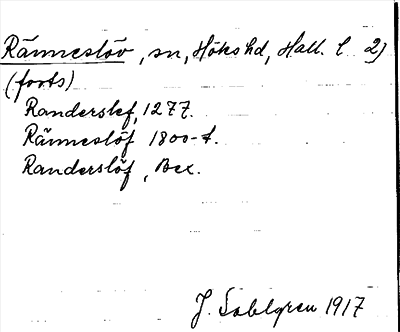 Ränneslöv, sn, Höks hd, Hall. l 2)
(forts)
Randerslef, 1277.
Ränneslöf 1800-t.
Randerslöf, Bex.
J. Sahlgren 1917